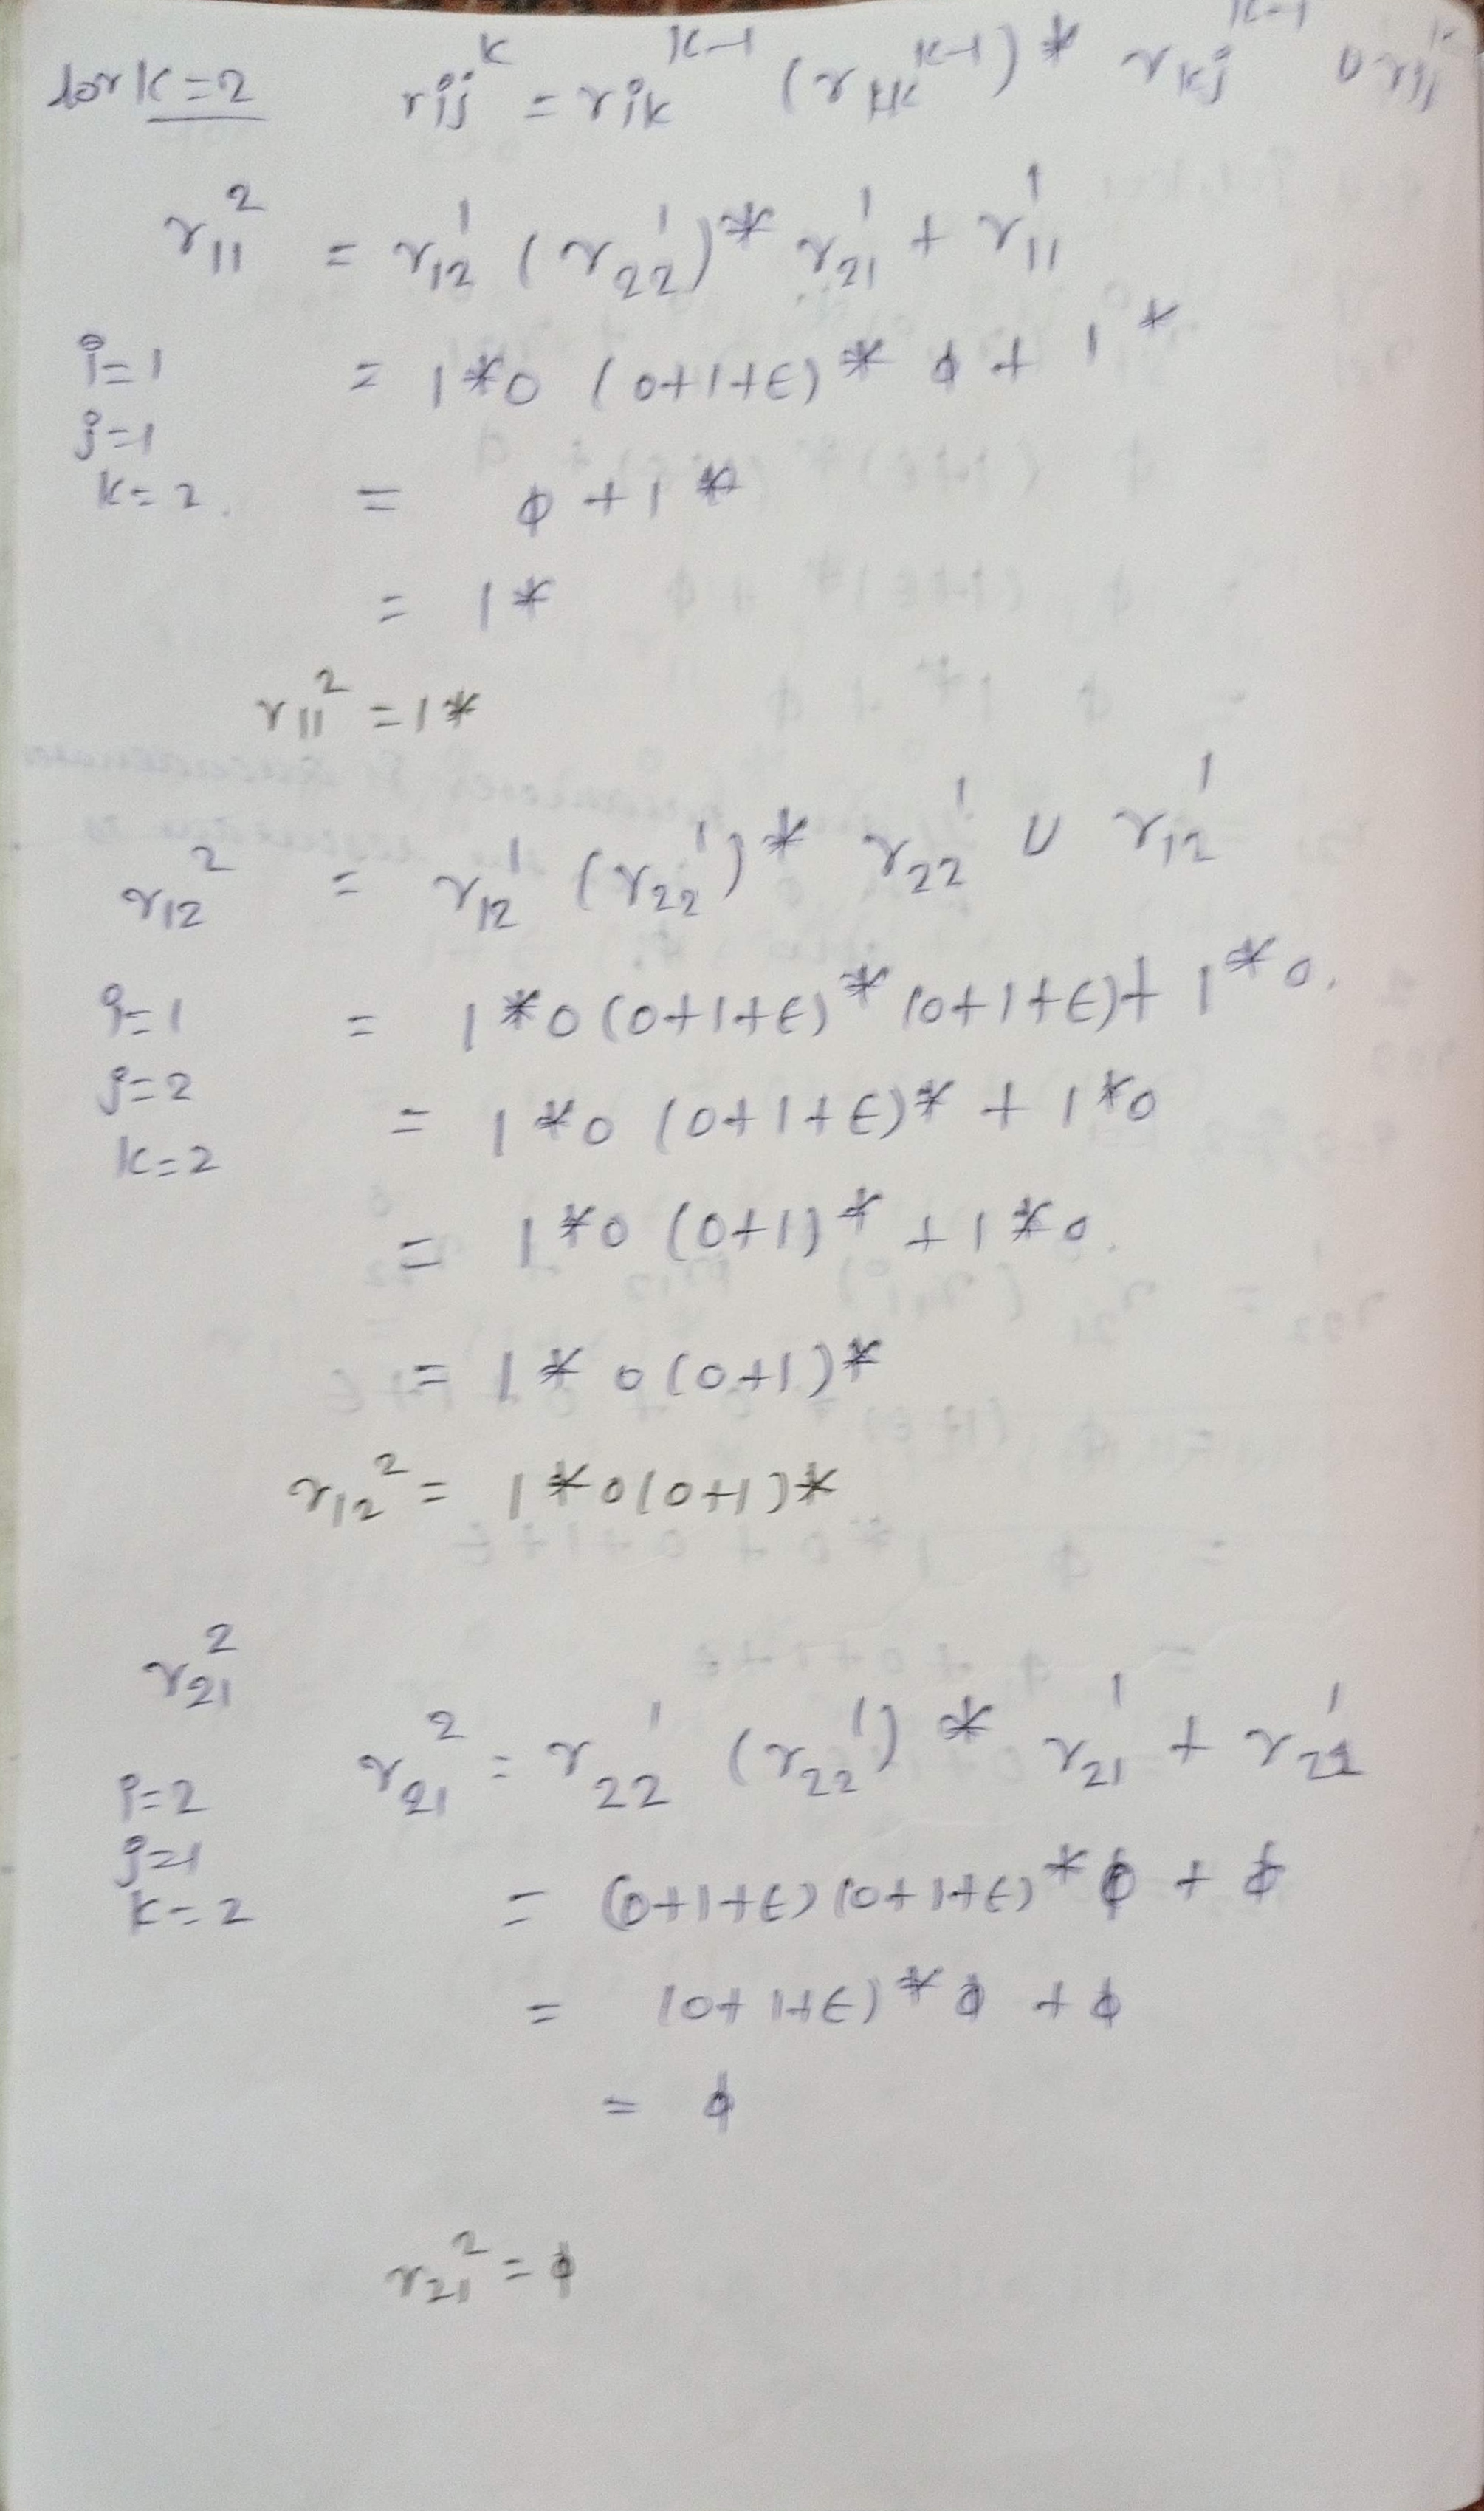 for k=2 rij^k = rik^k-1 (rkk^k-1)* rkj^k-1 ∪ rij^k-1
r11^2 = r12^1 (r22^1)* r21^1 + r11^1
i=1 = 1*0 (0+1+ε)* ϕ + 1*
j=1
k=2. = ϕ+1*
= 1*
r11^2 = 1*
r12^2 = r12^1 (r22^1)* r22^1 ∪ r12^1
i=1 = 1*0(0+1+ε)* (0+1+ε)+ 1*0.
j=2 = 1*0 (0+1+ε)* + 1*0
k=2
= 1*0 (0+1)* + 1*0.
= 1*0(0+1)*
r12^2 = 1*0(0+1)*
r21^2
r21^2 = r22^1 (r22^1)* r21^1 + r21^1
i=2
j=1 = (0+1+ε)(0+1+ε)*ϕ + ϕ
k=2
= (0+1+ε)*ϕ +ϕ
= ϕ
r21^2 = ϕ